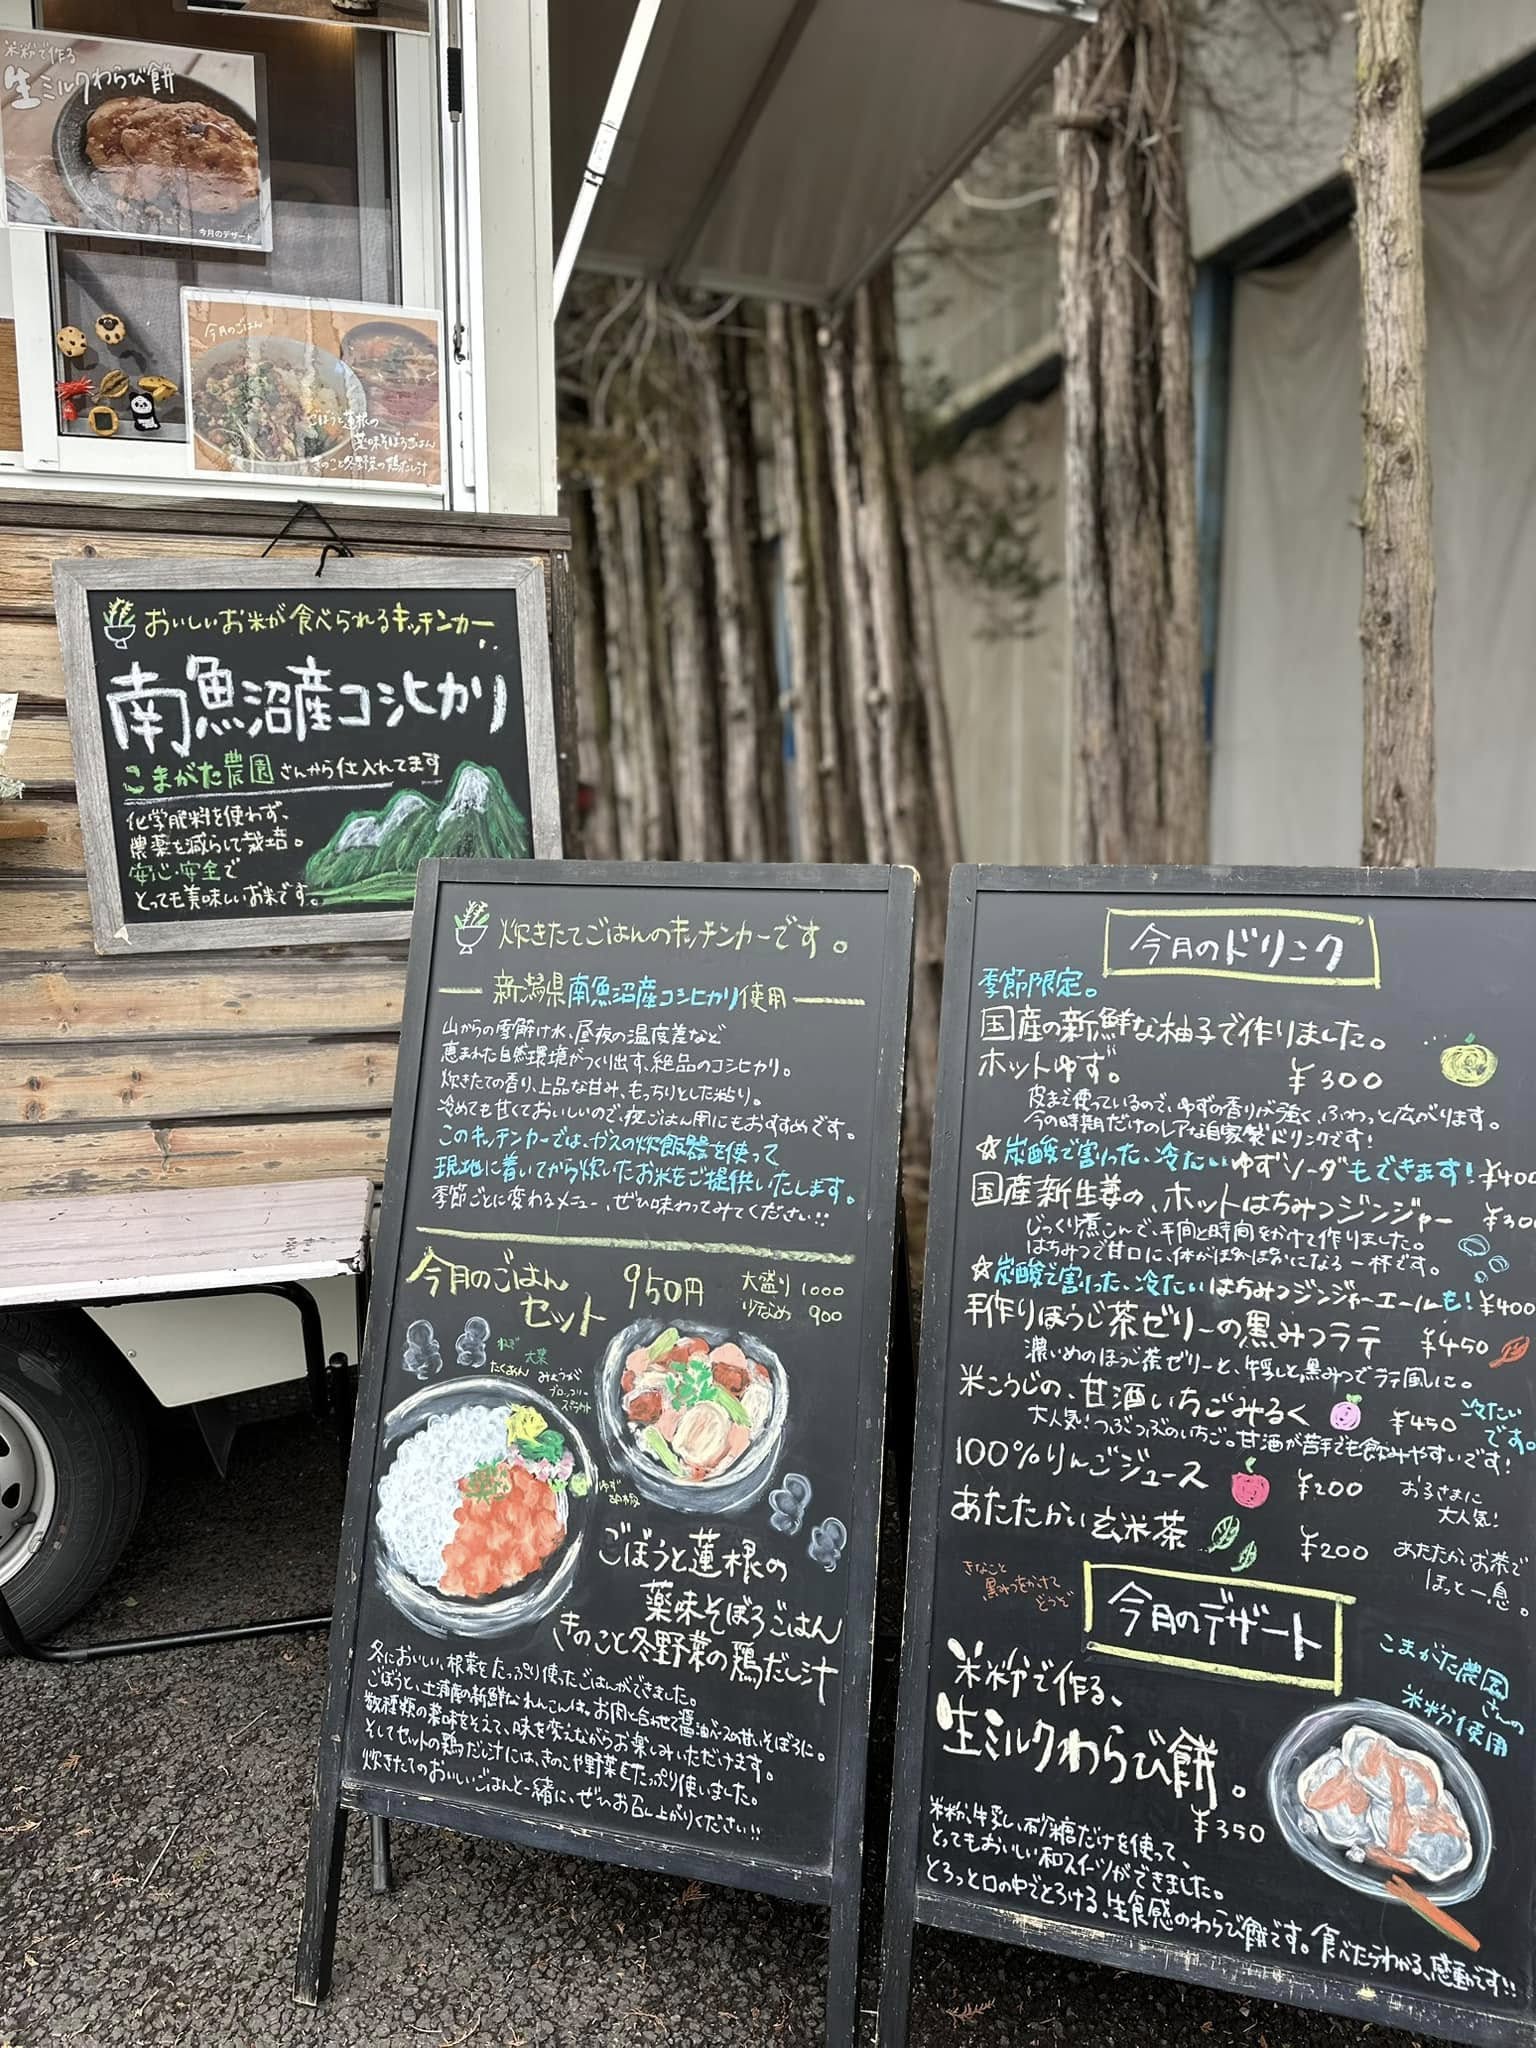 米粉で作る
生ミルクわらび餅
今月のデザート
今月のごはん
ごぼうと蓮根の
薬味そぼろごはん
きのこと冬野菜の鶏だし汁
おいしいお米が食べられるキッチンカー
南魚沼産コシヒカリ
こまがた農園さんから仕入れてます
化学肥料を使わず、
農薬を減らして栽培。
安心・安全で
とっても美味しいお米です。
炊きたてごはんのキッチンカーです。
新潟県南魚沼産コシヒカリ使用
山からの雪解け水、昼夜の温度差など
恵まれた自然環境がつくり出す、絶品のコシヒカリ。
炊きたての香り、上品な甘み、もっちりとした粘り。
冷めても甘くておいしいので、夜ごはん用にもおすすめです。
このキッチンカーでは、ガスの炊飯器を使って
現地に着いてから炊いたお米をご提供いたします。
季節ごとに変わるメニュー、ぜひ味わってみてください!!
今月のごはん
セット
950円
大盛り 1000
少なめ 900
ねぎ
大葉
たくあん
みょうが
ブロッコリー
スプラウト
ゆず
胡椒
ごぼうと蓮根の
薬味そぼろごはん
きのこと冬野菜の鶏だし汁
冬においしい、根菜をたっぷり使ったごはんができました。
ごぼうと、土浦産の新鮮なれんこんは。お肉と合わせて醤油ベースの甘いそぼろに。
数種類の薬味をそえて、味を変えながらお楽しみいただけます。
そしてセットの鶏だし汁には、きのこや野菜をたっぷり使いました。
炊きたてのおいしいごはんと一緒に、ぜひお召し上がりください!!
今月のドリンク
季節限定。
国産の新鮮な柚子で作りました。
ホットゆず。 ¥300
皮まで使っているので、ゆずの香りが強く、ふわっと広がります。
今の時期だけのレアな自家製ドリンクです!
☆炭酸で割った、冷たいゆずソーダもできます!¥400
国産新生姜の、ホットはちみつジンジャー ¥300
じっくり煮こんで、手間と時間をかけて作りました。
はちみつで甘口に、体がぽかぽかになる一杯です。
☆炭酸で割った、冷たいはちみつジンジャーエールも!¥400
手作りほうじ茶ゼリーの黒みつラテ ¥450
濃いめのほうじ茶ゼリーと、牛乳と黒みつでラテ風に。
米こうじの、甘酒いちごみるく ¥450 冷たい
です。
大人気!つぶつぶのいちご。甘酒が苦手でも飲みやすいです!
100%りんごジュース ¥200 お子さまに
大人気!
あたたかい玄米茶 ¥200 あたたかいお茶で
ほっと一息。
今月のデザート
きなこと
黒みつをかけて
どうぞ
こまがた農園
さんの
米粉使用
米粉で作る、
生ミルクわらび餅。
¥350
米粉、牛乳、砂糖だけを使って、
とってもおいしい和スイーツができました。
とろっと口の中でとろける、生食感のわらび餅です。食べたらわかる、感動です!!